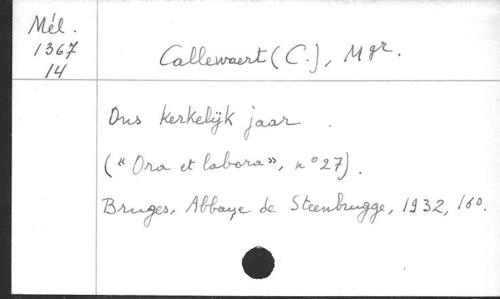 Mél.
1367
14
Callewaert (C.), Mgr.
Ons kerkelijk jaar.
(« Ora et labora », n° 27).
Bruges, Abbaye de Steenbrugge, 1932, 160.